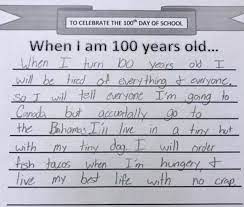 TO CELEBRATE THE 100th DAY OF SCHOOL
When I am 100 years old...
When I turn 100 years old I
will be tired of everything & everyone.
So I will tell everyone I'm going to
Canada but accidentally go to
the Bahamas. I'll live in a tiny hut
with my tiny dog. I will order
fish tacos when I'm hungery &
live my best life with no crap.